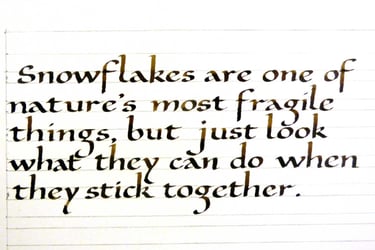 Snowflakes are one of
nature's most fragile
things, but just look
what they can do when
they stick together.